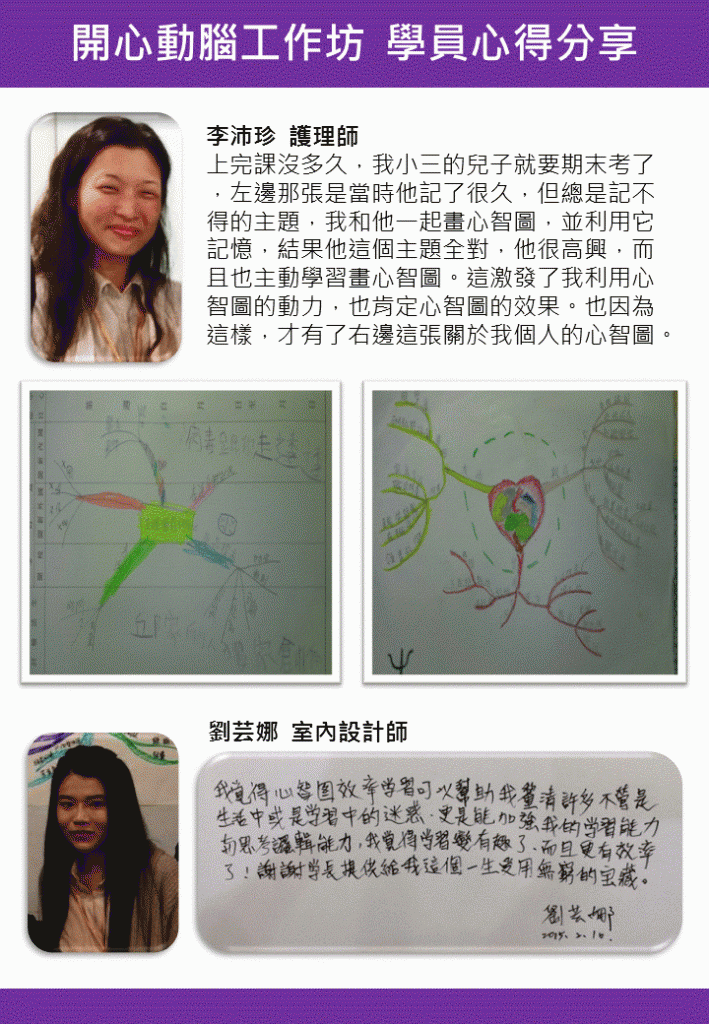 開心動腦工作坊 學員心得分享
李沛珍 護理師
上完課沒多久，我小三的兒子就要期末考了
，左邊那張是當時他記了很久，但總是記不
得的主題，我和他一起畫心智圖，並利用它
記憶，結果他這個主題全對，他很高興，而
且也主動學習畫心智圖。這激發了我利用心
智圖的動力，也肯定心智圖的效果。也因為
這樣，才有了右邊這張關於我個人的心智圖。
劉芸娜 室內設計師
我覺得心智图效率学習可以幫助我釐清許多不管是
生活中或是学習中的迷惑．更是能加強我的学習能力
与思考邏輯能力，我覺得学習變有趣了、而且更有效率
了！謝謝学長提供給我這個一生受用無窮的宝藏。
劉芸娜
2015. 2. 10.